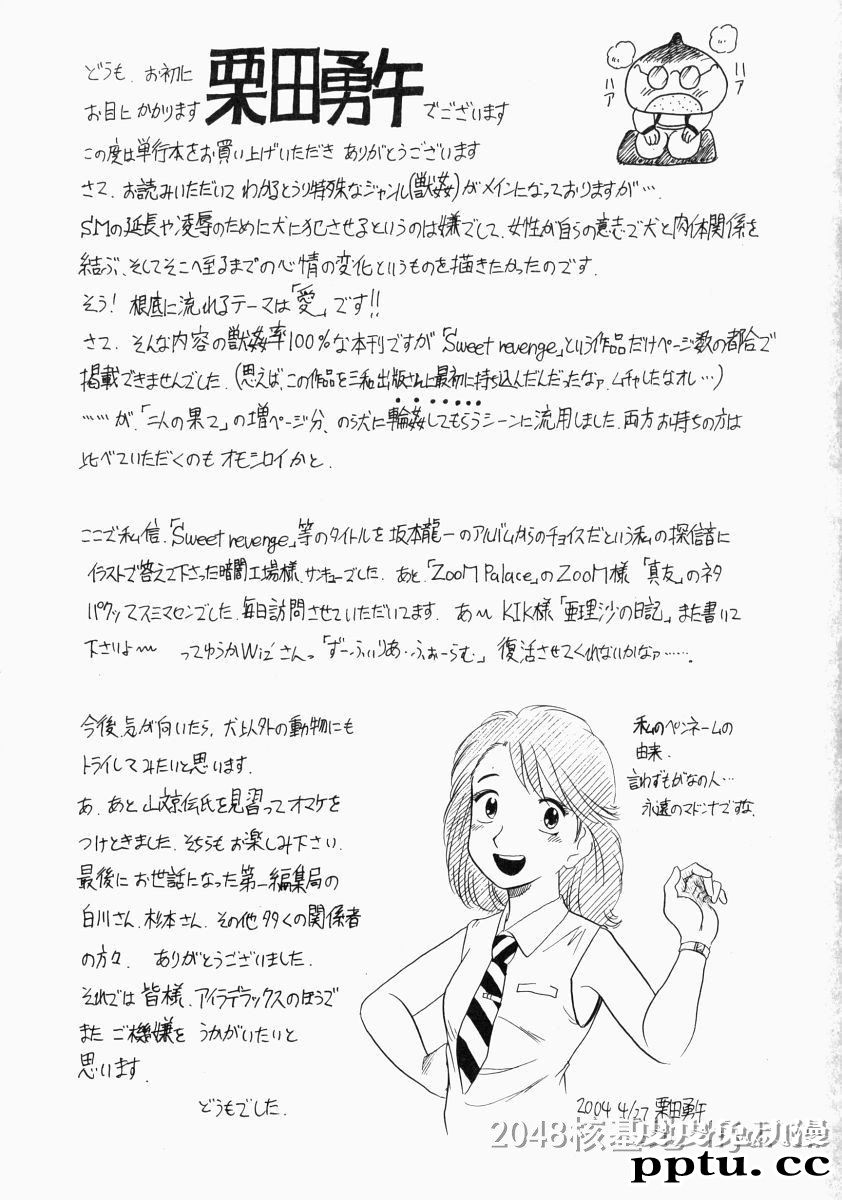 どうも、お初に
お目にかかります
栗田勇午
でございます
ハア
ハア
この度は単行本をお買い上げいただき ありがとうございます
さて、お読みいただいて わかるとうり特殊なジャンル(獣姦)がメインになっておりますが…、
SMの延長や凌辱のために犬に犯させるというのは嫌でして、女性が自らの意志で犬と肉体関係を
結ぶ、そしてそこへ至るまでの心情の変化というものを描きたかったのです.
そう! 根底に流れるテーマは「愛」です!!
さて、そんな内容の獣姦率100%な本刊ですが「Sweet revenge」という作品だけページ数の都合で
掲載できませんでした.(思えば、この作品を三和出版さんに最初に持ち込んだんだったなァ.ムチャしたなオレ…)
……が、「二人の果て」の増ページ分、のら犬に輪姦してもらうシーンに流用しました.両方お持ちの方は
比べていただくのもオモシロイかと.
ここで私信.「Sweet revenge」等のタイトルを坂本龍一のアルバムからのチョイスだという私の
イラストで答えて下さった暗闇工場様、サンキューでした. あと「ZooM Palace」のZooM様「真友」のネタ
パクッてスミマセンでした.毎日訪問させていただいてます. あ〜 KIK様「亜理沙の日記」また書いて
下さいよ〜 ってゆうかWiz'さんっ「ずーふぃりあ・ふぉーらむ」復活させてくれないかなァ…….
今後、気が向いたら、犬以外の動物にも
トライしてみたいと思います.
あ、あと 山文京伝氏を見習ってオマケを
つけときました.そちらもお楽しみ下さい.
最後に お世話になった第一編集局の
白川さん、杉本さん、その他多くの関係者
の方々、 ありがとうございました.
それでは 皆様、アイラデラックスのほうで
また ご機嫌を うかがいたいと
思います.
どうもでした.
私のペンネームの
由来.
言わずもがなの人…
永遠のマドンナですな.
2004 4/27 栗田勇午
2048核基
动漫
pptu.cc